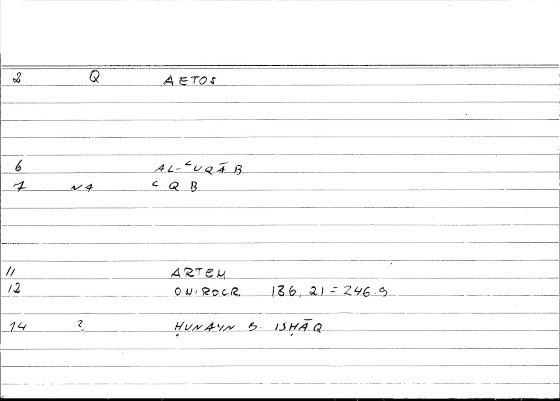 2 Q AETOS
6 AL-ʿUQĀB
7 NA ʿQB
11 ARTEM
12 ONIROCR 186, 21 = 246.9
14 ? ḤUNAYN B. ISḤĀQ